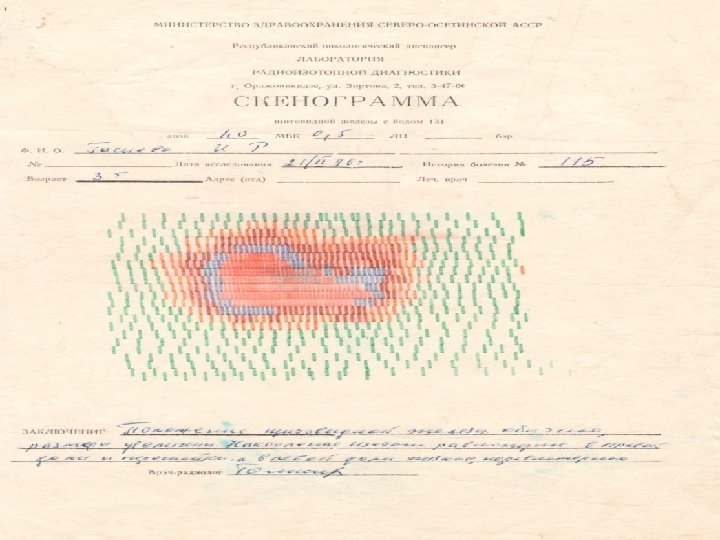 МИНИСТЕРСТВО ЗДРАВООХРАНЕНИЯ СЕВЕРО-ОСЕТИНСКОЙ АССР
Республиканский онкологический диспансер
ЛАБОРАТОРИЯ
РАДИОИЗОТОПНОЙ ДИАГНОСТИКИ
г. Орджоникидзе, ул. Зортова, 2, тел. 3-47-06
СКЕНОГРАММА
щитовидной железы с йодом 131
доза 1,0 МБК 0,5 ЛП бэр
Ф. И. О. И Р
№ Дата исследования История болезни № 115
Возраст 35 Адрес (отд) Леч. врач
ЗАКЛЮЧЕНИЕ: Положение щитовидной железы обычно,
размеры увеличены Накопление изотопа равномерное в правой
доли и перешейки, в левой доли неравномерно
Врач-радиолог